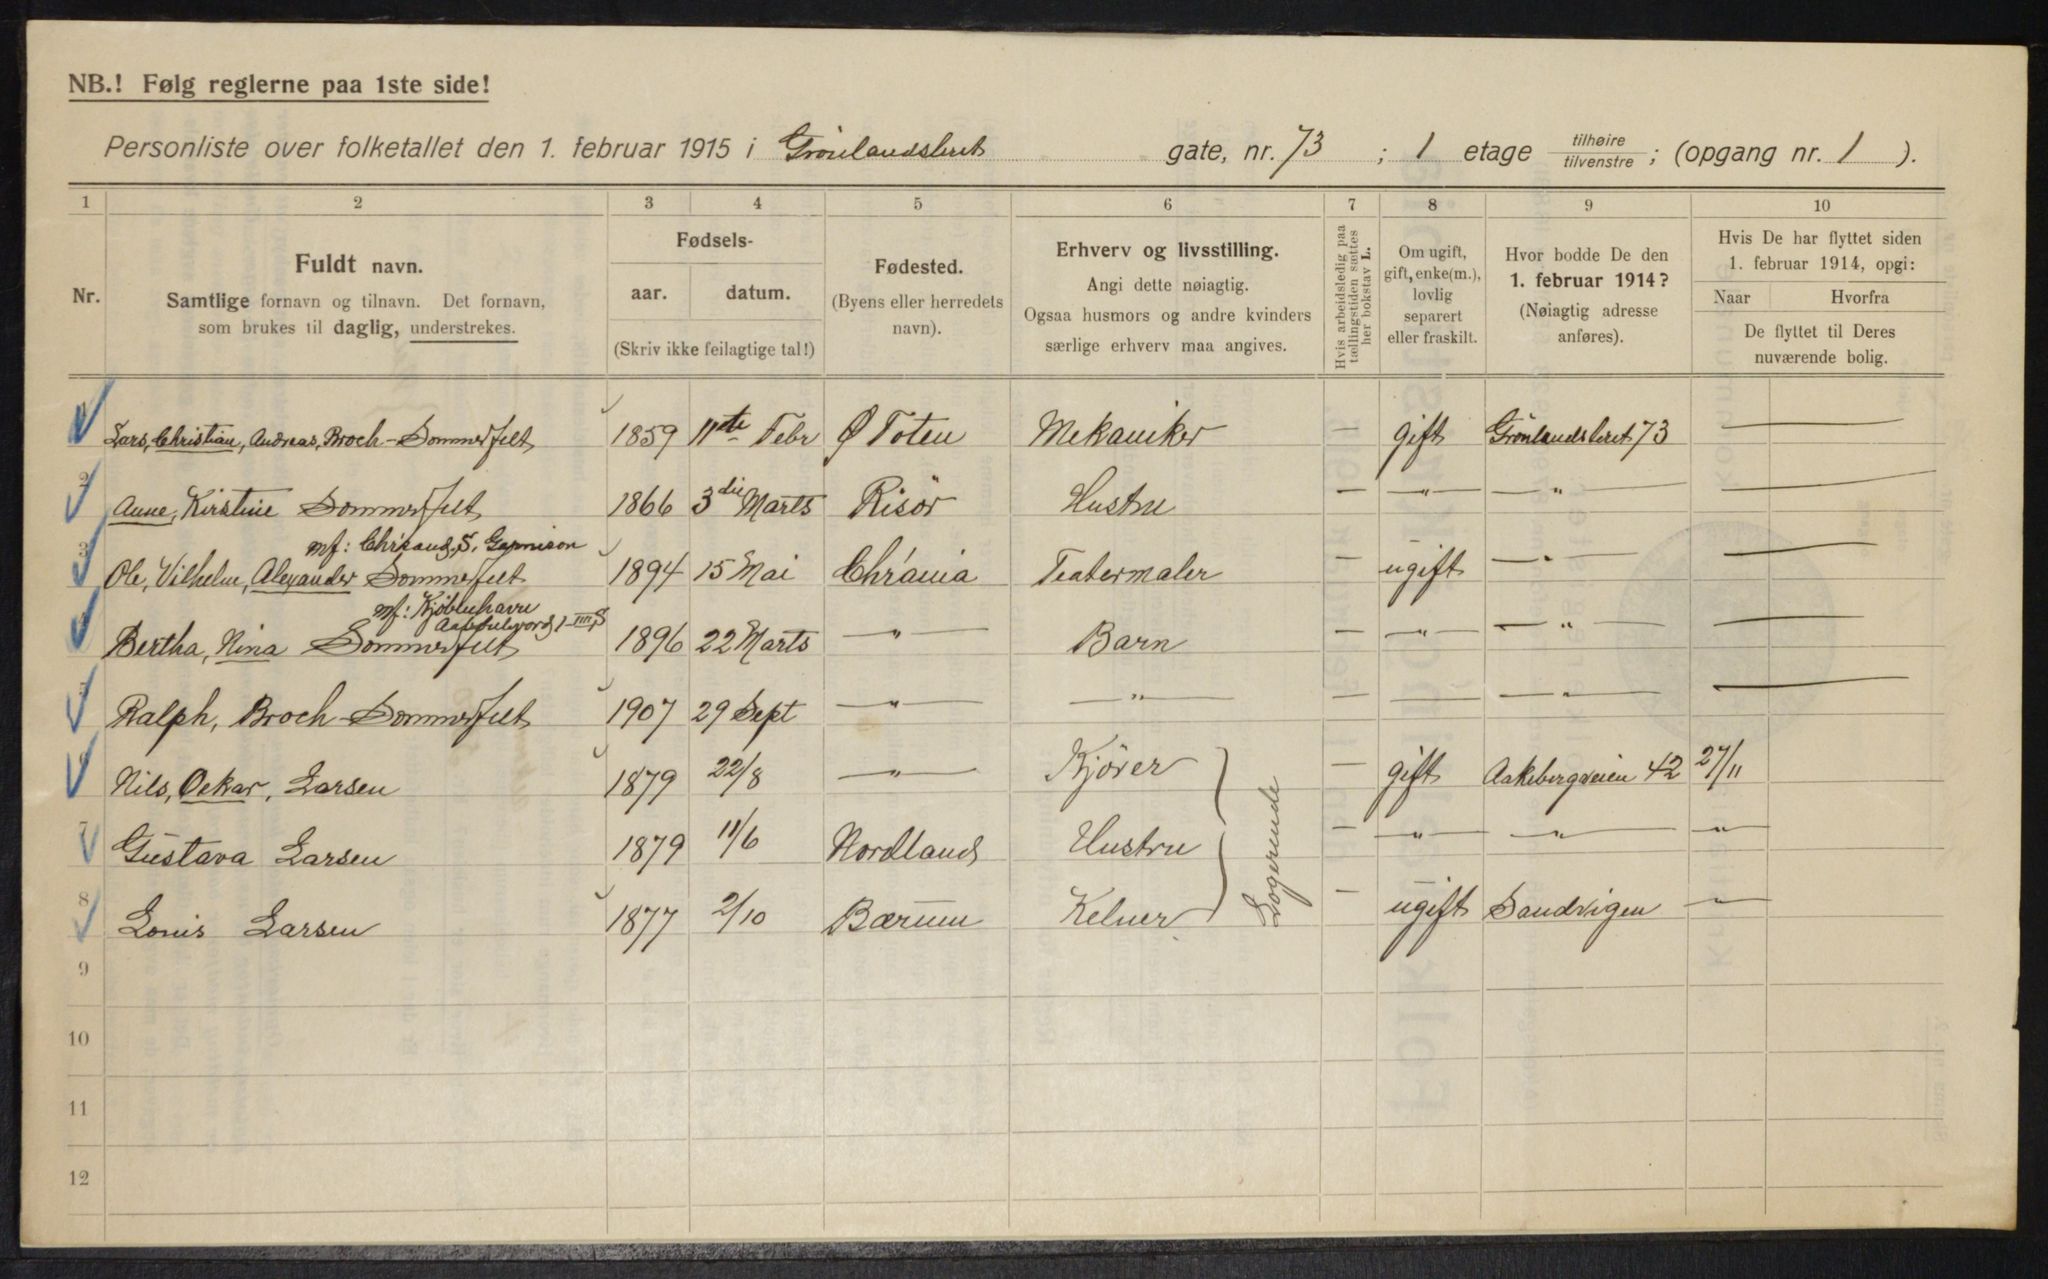 NB.! Følg reglerne paa 1ste side!
Personliste over folketallet den 1. februar 1915 i Grönlandsleret gate, nr. 73 ; 1 etage tilhøire tilvenstre ; (opgang nr. 1 ).
1 2 3 4 5 6 7 8 9 10
Nr.
Fuldt navn.
Samtlige fornavn og tilnavn. Det fornavn,
som brukes til daglig, understrekes.
Fødsels-
aar. datum.
(Skriv ikke feilagtige tal!)
Fødested.
(Byens eller herredets
navn).
Erhverv og livsstilling.
Angi dette nøiagtig.
Ogsaa husmors og andre kvinders
særlige erhverv maa angives.
Hvis arbeidsledig paa
tællingstiden sættes
her bokstav L.
Om ugift,
gift, enke(m.),
lovlig
separert
eller fraskilt.
Hvor bodde De den
1. februar 1914?
(Nøiagtig adresse
anføres).
Hvis De har flyttet siden
1. februar 1914, opgi:
Naar Hvorfra
De flyttet til Deres
nuværende bolig.
Lars, Christian, Andreas, Broch-Sommerfelt 1859 11te Febr Ø Toten Mekaniker — gift Grönlandsleret 73 —
2 Anne, Kirstine Sommerfelt 1866 3die Marts Risör Hustru — —"— —"— —
mf: Chr'sand, S. Garnison
3 Ole, Vilhelm, Alexander Sommerfelt 1894 15 Mai Chr'ania Teatermaler — ugift —"— —
mf: Kjöbenhavn
Bertha, Nina Sommerfelt 1896 22 Marts —"— Barn — —"— —"— —
Ralph, Broch-Sommerfelt 1907 29 Sept —"— —"— — — —"— —
6 Nils, Oskar, Larsen 1879 22/8 —"— Kjörer — gift Aakebergveien 42 27/11
7 Gustava Larsen 1879 11/6 Nordland Hustru — —"— —"— —"—
8 Louis Larsen 1877 2/10 Bærum Kelner — ugift Sandvigen —"—
Logerende
9
10
11
12